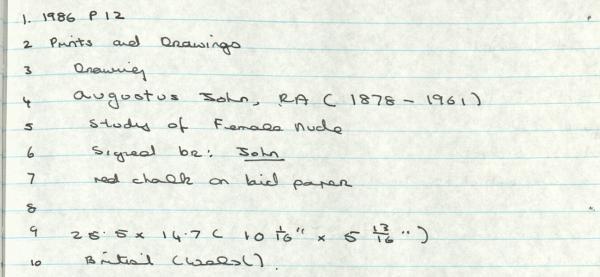 1. 1986 P 12
2 Prints and Drawings
3 Drawing
4 Augustus John, RA (1878 - 1961)
5 Study of Female Nude
6 Signed br: John
7 red chalk on laid paper
8
9 25.5 x 14.7 ( 10 1/16" x 5 13/16" )
10 British (Wales).